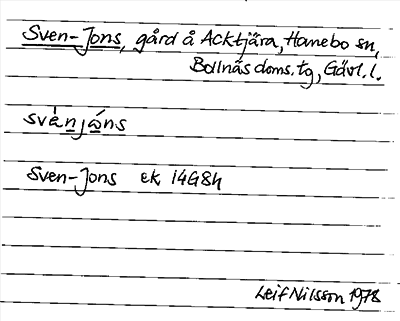 Sven-Jons, gård å Acktjära, Hanebo sn,
Bollnäs doms. tg, Gävl. l.
svànjǻns
Sven-Jons ek 14G8h
Leif Nilsson 1978